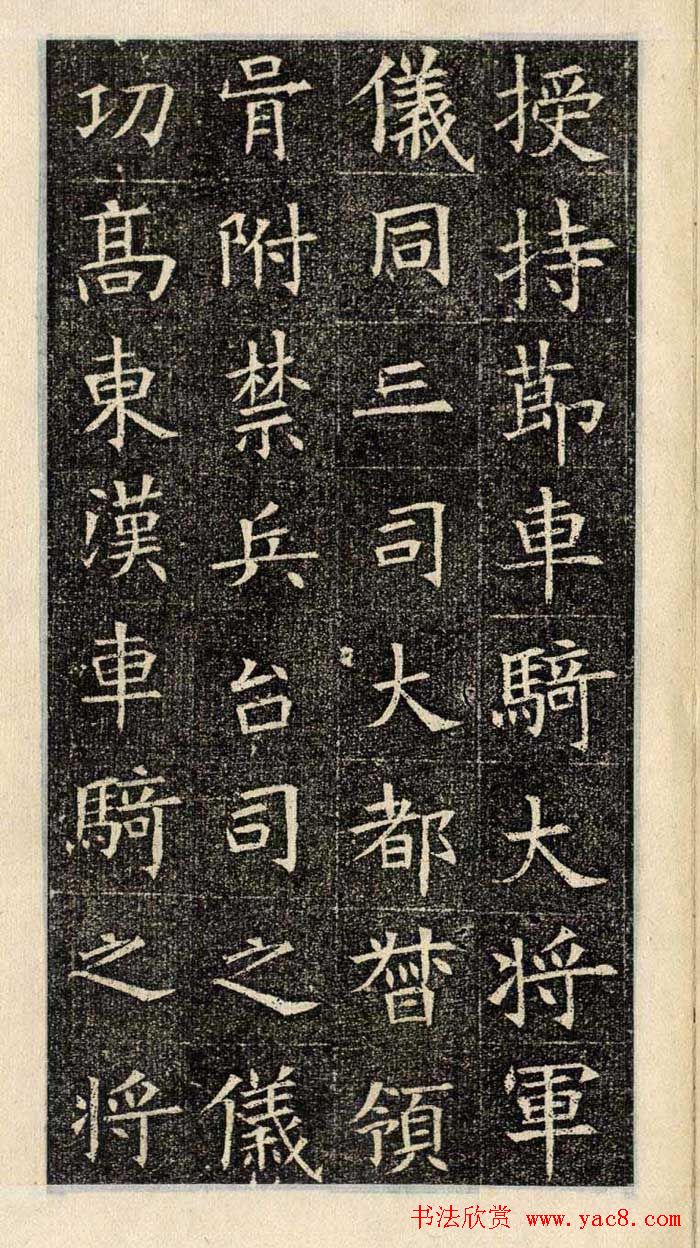 授持莭車騎大将軍
儀同三司大都督領
胥附禁兵台司之儀
功髙東漢車騎之将
书法欣赏 www.yac8.com